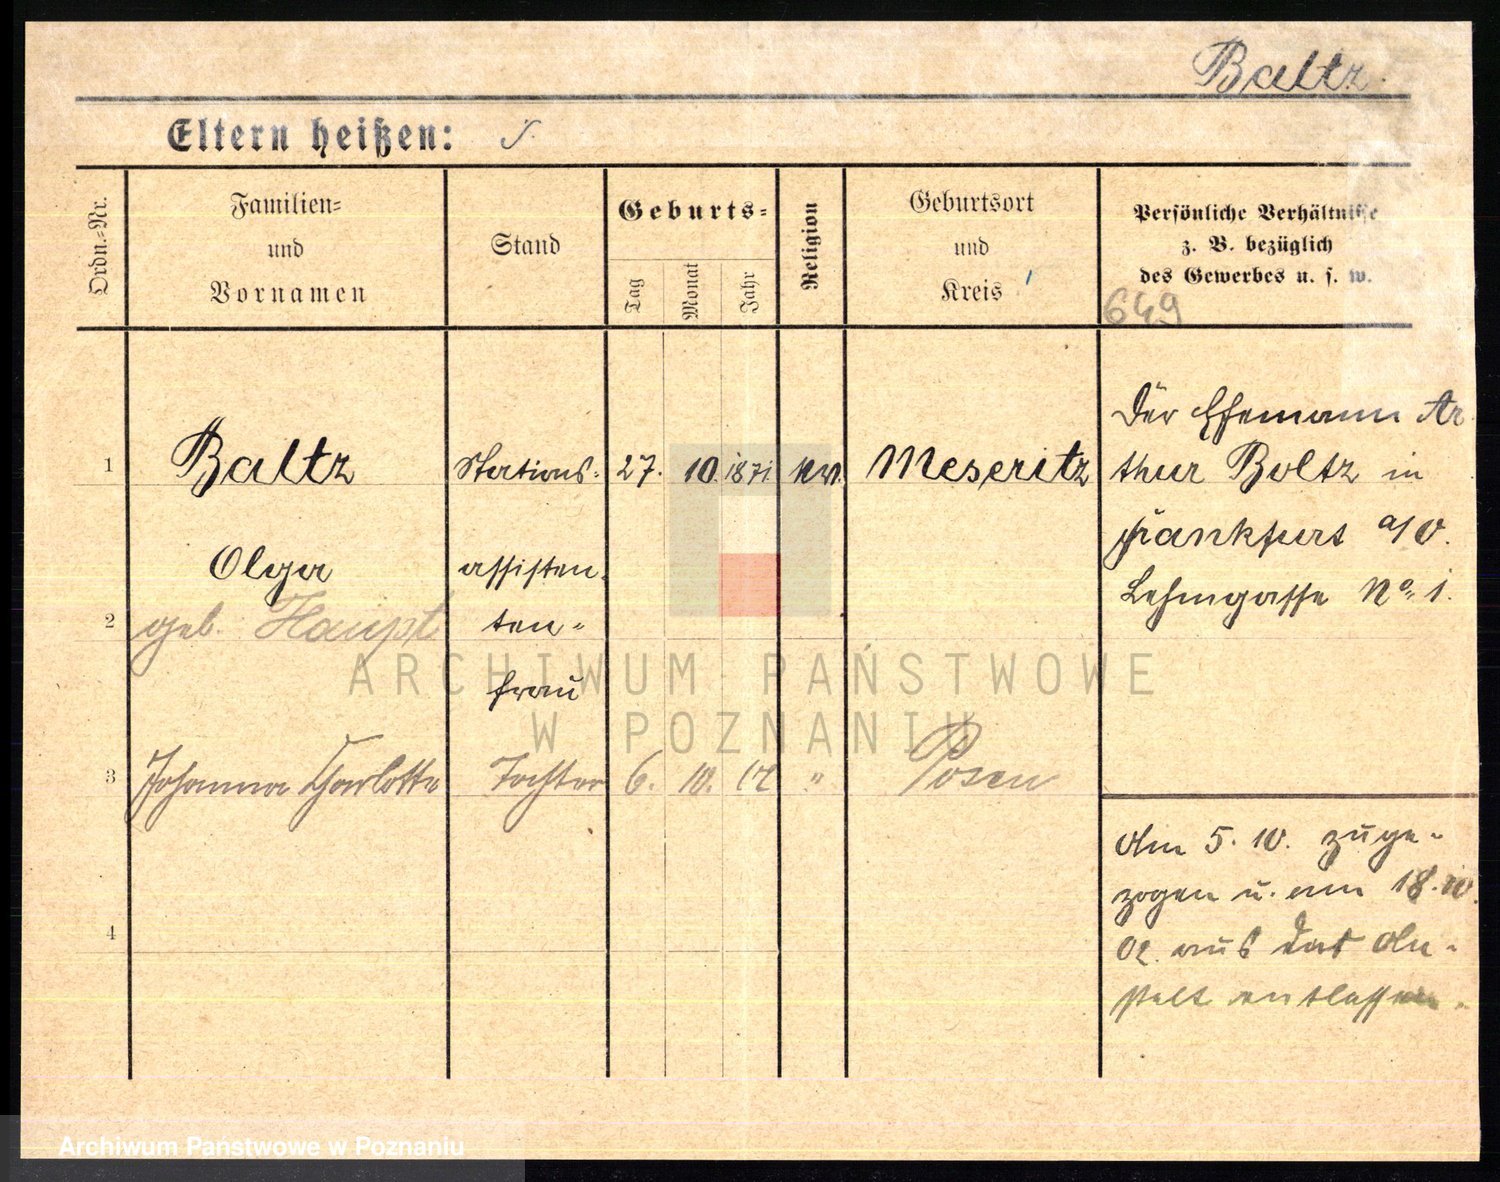 Baltz.
Eltern heißen:
Ordn.-Nr.
Familien-
und
Vornamen
Stand
Geburts-
Tag
Monat
Jahr
Religion
Geburtsort
und
Kreis
Persönliche Verhältnisse
z. B. bezüglich
des Gewerbes u. s. w.
649
1
Baltz
Stations-
27. 10. 1871.
Meseritz
Der Ehemann Ar
thur Baltz in
Frankfurt a/O.
Lehmgasse No. 1.
Olga
assisten-
2
geb. Haupt
ten-
frau
3
Johanna Charlotte
Tochter
6. 10. 02
"
Posen
4
Am 5. 10. zuge-
zogen u. am 18. 10.
02. aus der An-
stalt entlassen.
ARCHIWUM PAŃSTWOWE
W POZNANIU
Archiwum Państwowe w Poznaniu